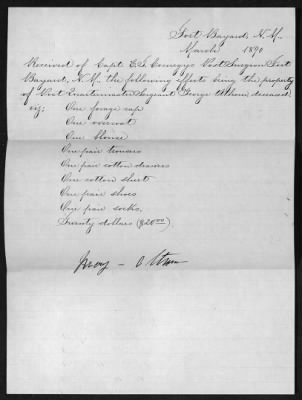 Fort Bayard, N.M.
March 1890
Received of Capt E.T. Comegys Post Surgeon Fort
Bayard, N.M. the following effects being the property
of Post Quartermaster Sergeant George deceased
viz: One forage cap
One overcoat
One blouse
One pair trousers
One pair cotton drawers
One cotton shirt
One pair shoes
One pair socks,
Twenty dollars ($20.00)